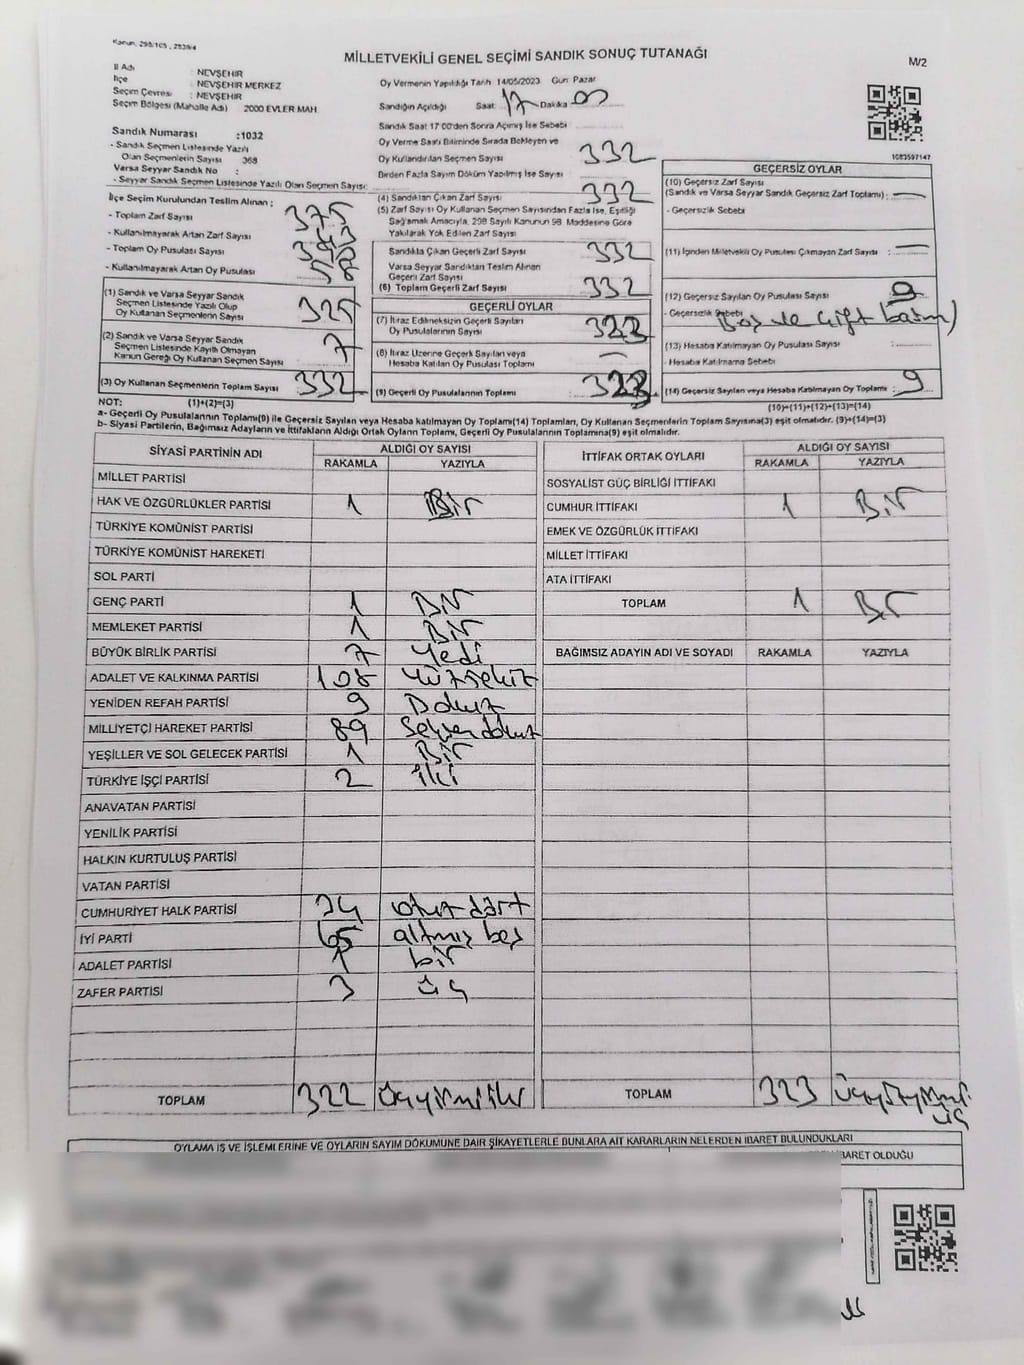 Kanun: 298/105 , 2839/4
MİLLETVEKİLİ GENEL SEÇİMİ SANDIK SONUÇ TUTANAĞI
M/2
İl Adı : NEVŞEHİR
İlçe : NEVŞEHİR MERKEZ
Seçim Çevresi : NEVŞEHİR
Seçim Bölgesi (Mahalle Adı) 2000 EVLER MAH
Sandık Numarası :1032
- Sandık Seçmen Listesinde Yazılı
Olan Seçmenlerin Sayısı 368
Varsa Seyyar Sandık No :
- Seyyar Sandık Seçmen Listesinde Yazılı Olan Seçmen Sayısı:
Oy Vermenin Yapıldığı Tarih 14/05/2023 Gün: Pazar
Sandığın Açıldığı Saat: 17 Dakika 00
Sandık Saat 17:00'den Sonra Açılmış İse Sebebi
Oy Verme Saati Bitiminde Sırada Bekleyen ve
Oy Kullandırılan Seçmen Sayısı 332
Birden Fazla Sayım Döküm Yapılmış İse Sayısı
1083597147
İlçe Seçim Kurulundan Teslim Alınan ;
- Toplam Zarf Sayısı 375
- Kullanılmayarak Artan Zarf Sayısı
- Toplam Oy Pusulası Sayısı
- Kullanılmayarak Artan Oy Pusulası 58
(1) Sandık ve Varsa Seyyar Sandık
Seçmen Listesinde Yazılı Olup
Oy Kullanan Seçmenlerin Sayısı 325
(2) Sandık ve Varsa Seyyar Sandık
Seçmen Listesinde Kayıtlı Olmayan
Kanun Gereği Oy Kullanan Seçmen Sayısı 7
(3) Oy Kullanan Seçmenlerin Toplam Sayısı 332
(4) Sandıktan Çıkan Zarf Sayısı 332
(5) Zarf Sayısı Oy Kullanan Seçmen Sayısından Fazla İse, Eşitliği
Sağlamak Amacıyla, 298 Sayılı Kanunun 98. Maddesine Göre
Yakılarak Yok Edilen Zarf Sayısı
Sandıkta Çıkan Geçerli Zarf Sayısı 332
Varsa Seyyar Sandıktan Teslim Alınan
Geçerli Zarf Sayısı
(6) Toplam Geçerli Zarf Sayısı 332
GEÇERLİ OYLAR
(7) İtiraz Edilmeksizin Geçerli Sayılan
Oy Pusulalarının Sayısı 323
(8) İtiraz Üzerine Geçerli Sayılan veya
Hesaba Katılan Oy Pusulası Toplamı —
(9) Geçerli Oy Pusulalarının Toplamı 323
GEÇERSİZ OYLAR
(10) Geçersiz Zarf Sayısı
(Sandık ve Varsa Seyyar Sandık Geçersiz Zarf Toplamı) : —
- Geçersizlik Sebebi
(11) İçinden Milletvekili Oy Pusulası Çıkmayan Zarf Sayısı : —
(12) Geçersiz Sayılan Oy Pusulası Sayısı 9
- Geçersizlik Sebebi (Boş ve Çift basım)
(13) Hesaba Katılmayan Oy Pusulası Sayısı :
- Hesaba Katılmama Sebebi
(14) Geçersiz Sayılan veya Hesaba Katılmayan Oy Toplamı : 9
NOT: (1)+(2)=(3) (10)+(11)+(12)+(13)=(14)
a- Geçerli Oy Pusulalarının Toplamı(9) ile Geçersiz Sayılan veya Hesaba katılmayan Oy Toplamı(14) Toplamları, Oy Kullanan Seçmenlerin Toplam Sayısına(3) eşit olmalıdır. (9)+(14)=(3)
b- Siyasi Partilerin, Bağımsız Adayların ve İttifakların Aldığı Ortak Oyların Toplamı, Geçerli Oy Pusulalarının Toplamına(9) eşit olmalıdır.
SİYASİ PARTİNİN ADI ALDIĞI OY SAYISI
RAKAMLA YAZIYLA
MİLLET PARTİSİ
HAK VE ÖZGÜRLÜKLER PARTİSİ 1 Bir
TÜRKİYE KOMÜNİST PARTİSİ
TÜRKİYE KOMÜNİST HAREKETİ
SOL PARTİ
GENÇ PARTİ 1 Bir
MEMLEKET PARTİSİ 1 Bir
BÜYÜK BİRLİK PARTİSİ 7 Yedi
ADALET VE KALKINMA PARTİSİ 108 Yüzsekiz
YENİDEN REFAH PARTİSİ 9 Dokuz
MİLLİYETÇİ HAREKET PARTİSİ 89 Seksendokuz
YEŞİLLER VE SOL GELECEK PARTİSİ 1 Bir
TÜRKİYE İŞÇİ PARTİSİ 2 iki
ANAVATAN PARTİSİ
YENİLİK PARTİSİ
HALKIN KURTULUŞ PARTİSİ
VATAN PARTİSİ
CUMHURİYET HALK PARTİSİ 34 otuz dört
İYİ PARTİ 65 altmış beş
ADALET PARTİSİ 1 bir
ZAFER PARTİSİ 3 üç
TOPLAM 322 üçyirmiiki
İTTİFAK ORTAK OYLARI ALDIĞI OY SAYISI
RAKAMLA YAZIYLA
SOSYALİST GÜÇ BİRLİĞİ İTTİFAKI
CUMHUR İTTİFAKI 1 Bir
EMEK VE ÖZGÜRLÜK İTTİFAKI
MİLLET İTTİFAKI
ATA İTTİFAKI
TOPLAM 1 Bir
BAĞIMSIZ ADAYIN ADI VE SOYADI RAKAMLA YAZIYLA
TOPLAM 323 üçyüzyirmi
üç
OYLAMA İŞ VE İŞLEMLERİNE VE OYLARIN SAYIM DÖKÜMÜNE DAİR ŞİKAYETLERLE BUNLARA AİT KARARLARIN NELERDEN İBARET BULUNDUKLARI
İBARET OLDUĞU